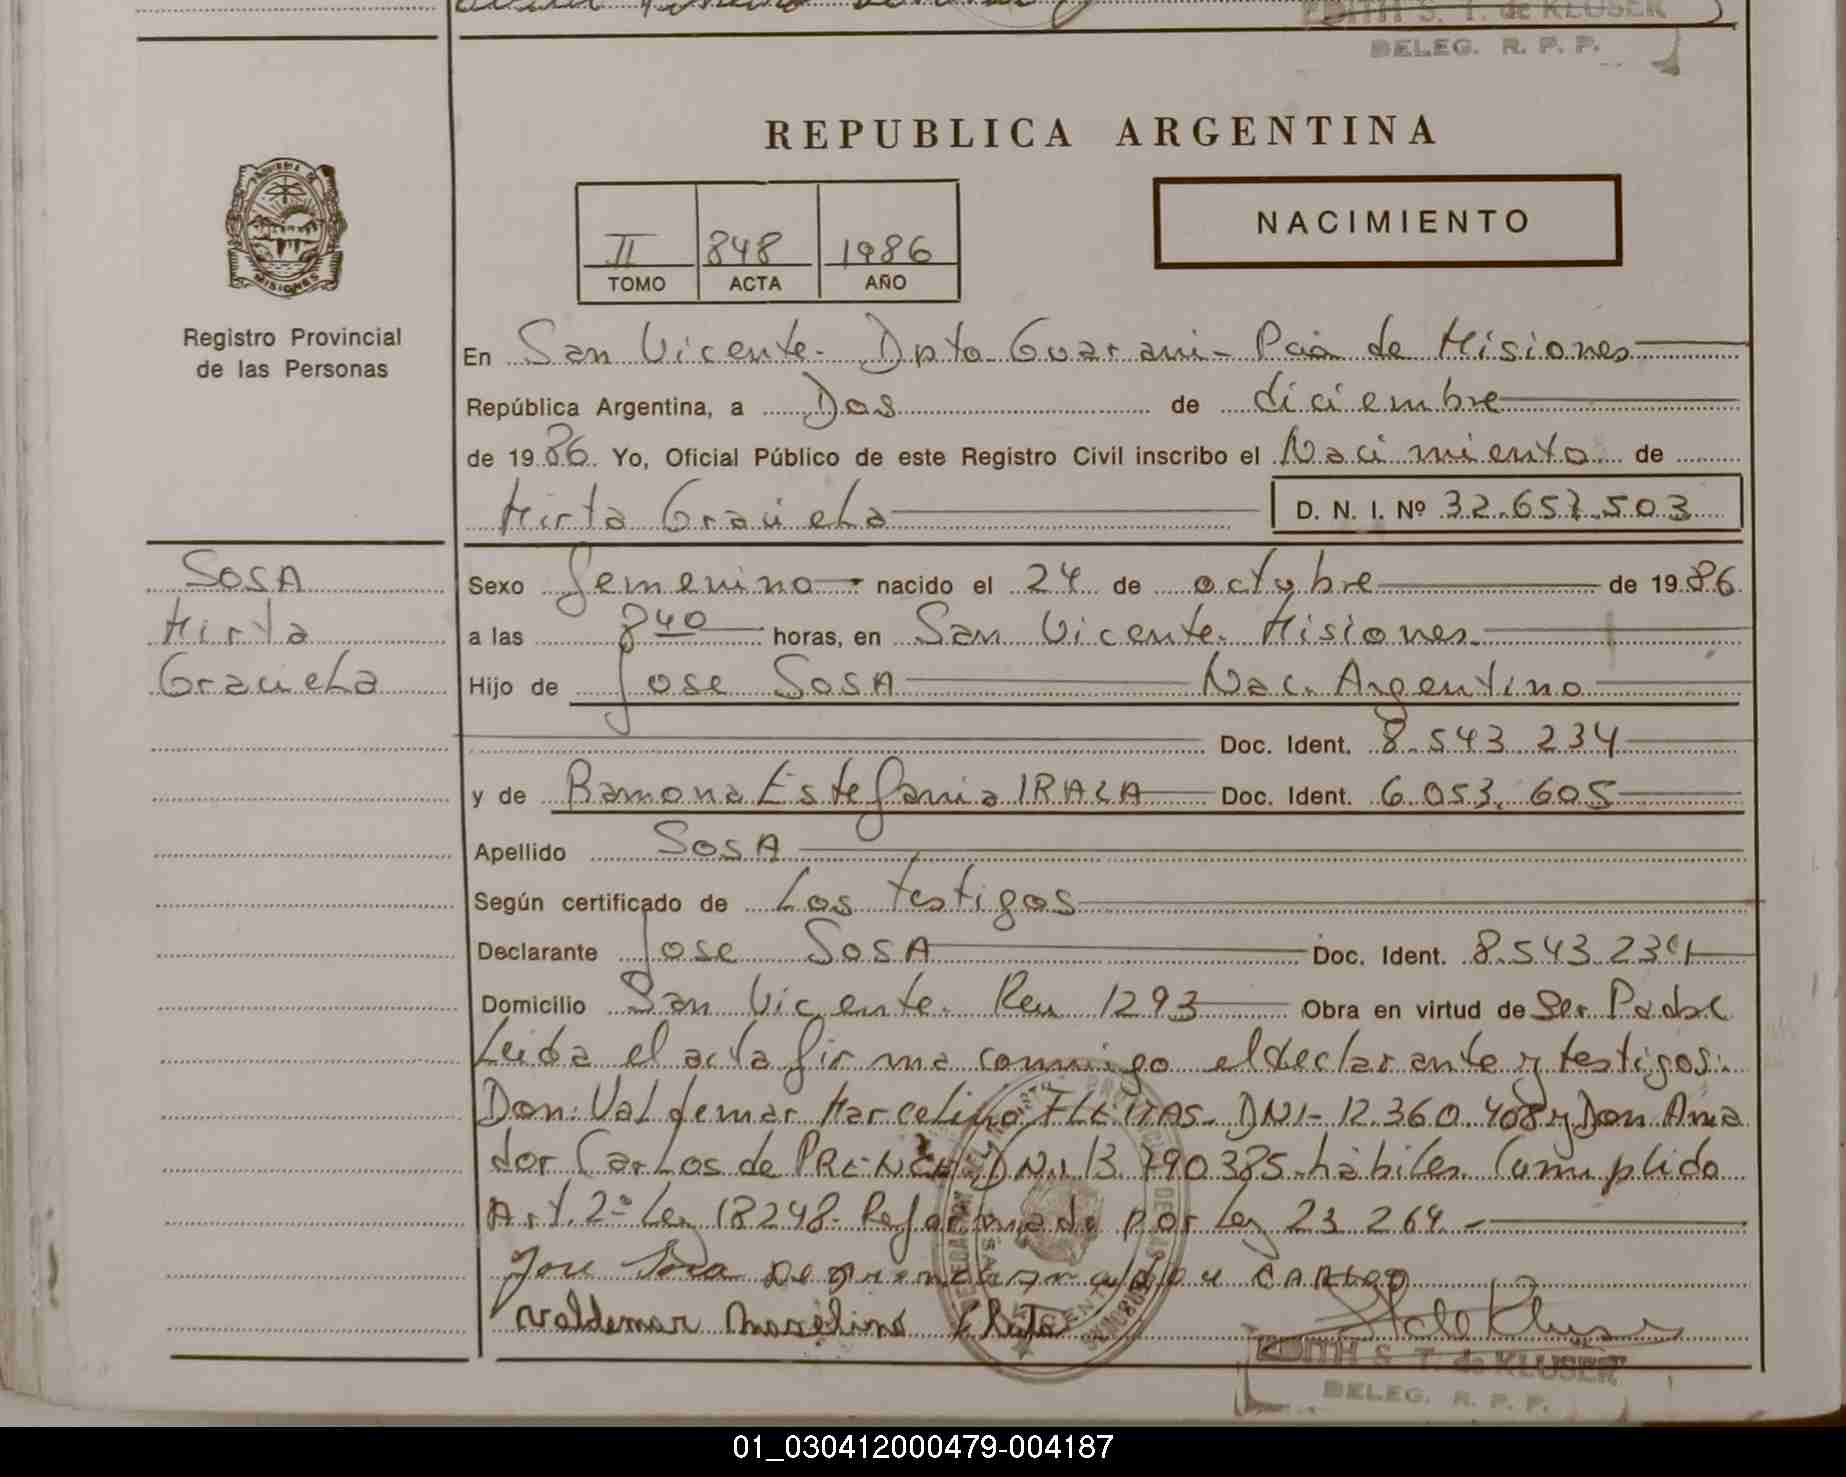 EDITH S. T. de KLUSER
DELEG. R. P. P.
REPUBLICA ARGENTINA
PROVINCIA DE
MISIONES
Registro Provincial
de las Personas
II 848 1986
TOMO ACTA AÑO
NACIMIENTO
En San Vicente. Dpto Guarani- Pcia de Misiones
República Argentina, a Dos de diciembre
de 1986 Yo, Oficial Público de este Registro Civil inscribo el Nacimiento de
Mirta Graciela D. N. I. Nº 32.657.503
SOSA
Mirta
Graciela
Sexo femenino nacido el 24 de octubre de 1986
a las 8 40 horas, en San Vicente. Misiones.
Hijo de Jose SOSA Nac. Argentino
Doc. Ident. 8.543.234
y de Ramona Estefania IRALA Doc. Ident. 6.053.605
Apellido SOSA
Según certificado de Los testigos
Declarante Jose SOSA Doc. Ident. 8.543.234
Domicilio San Vicente. Reu 1293 Obra en virtud de Ser Padre
Leida el acta firma conmigo el declarante y testigos:
Don: Valdemar Marcelino FLEITAS. DNI- 12.360.408 y Don Ama
dor Carlos de DNI 13.790385 habiles. Cumplido
Art. 2º Ley 18248. Reformado por Ley 23 264. -
Jose Sosa CARLOS
Valdemar Marcelino
EDITH S. T. de KLUSER
DELEG. R. P. P.
01_030412000479-004187